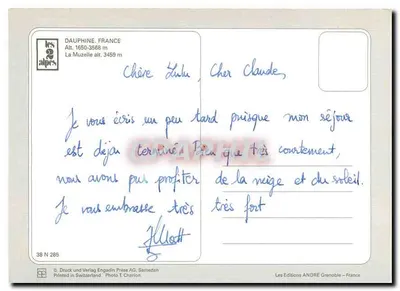 les 2 alpes
DAUPHINE, FRANCE
Alt. 1650-3568 m
La Muzelle alt. 3459 m
Chère Lulu, Cher Claude,
Je vous écris un peu tard puisque mon séjour
est déjà terminé. Bien que très courtement,
nous avons pus profiter de la neige et du soleil.
Je vous embrasse très très fort
38 N 265
© Druck und Verlag Engadin Press AG, Samedan
Printed in Switzerland Photo T. Chatton
Les Editions ANDRÉ Grenoble - France